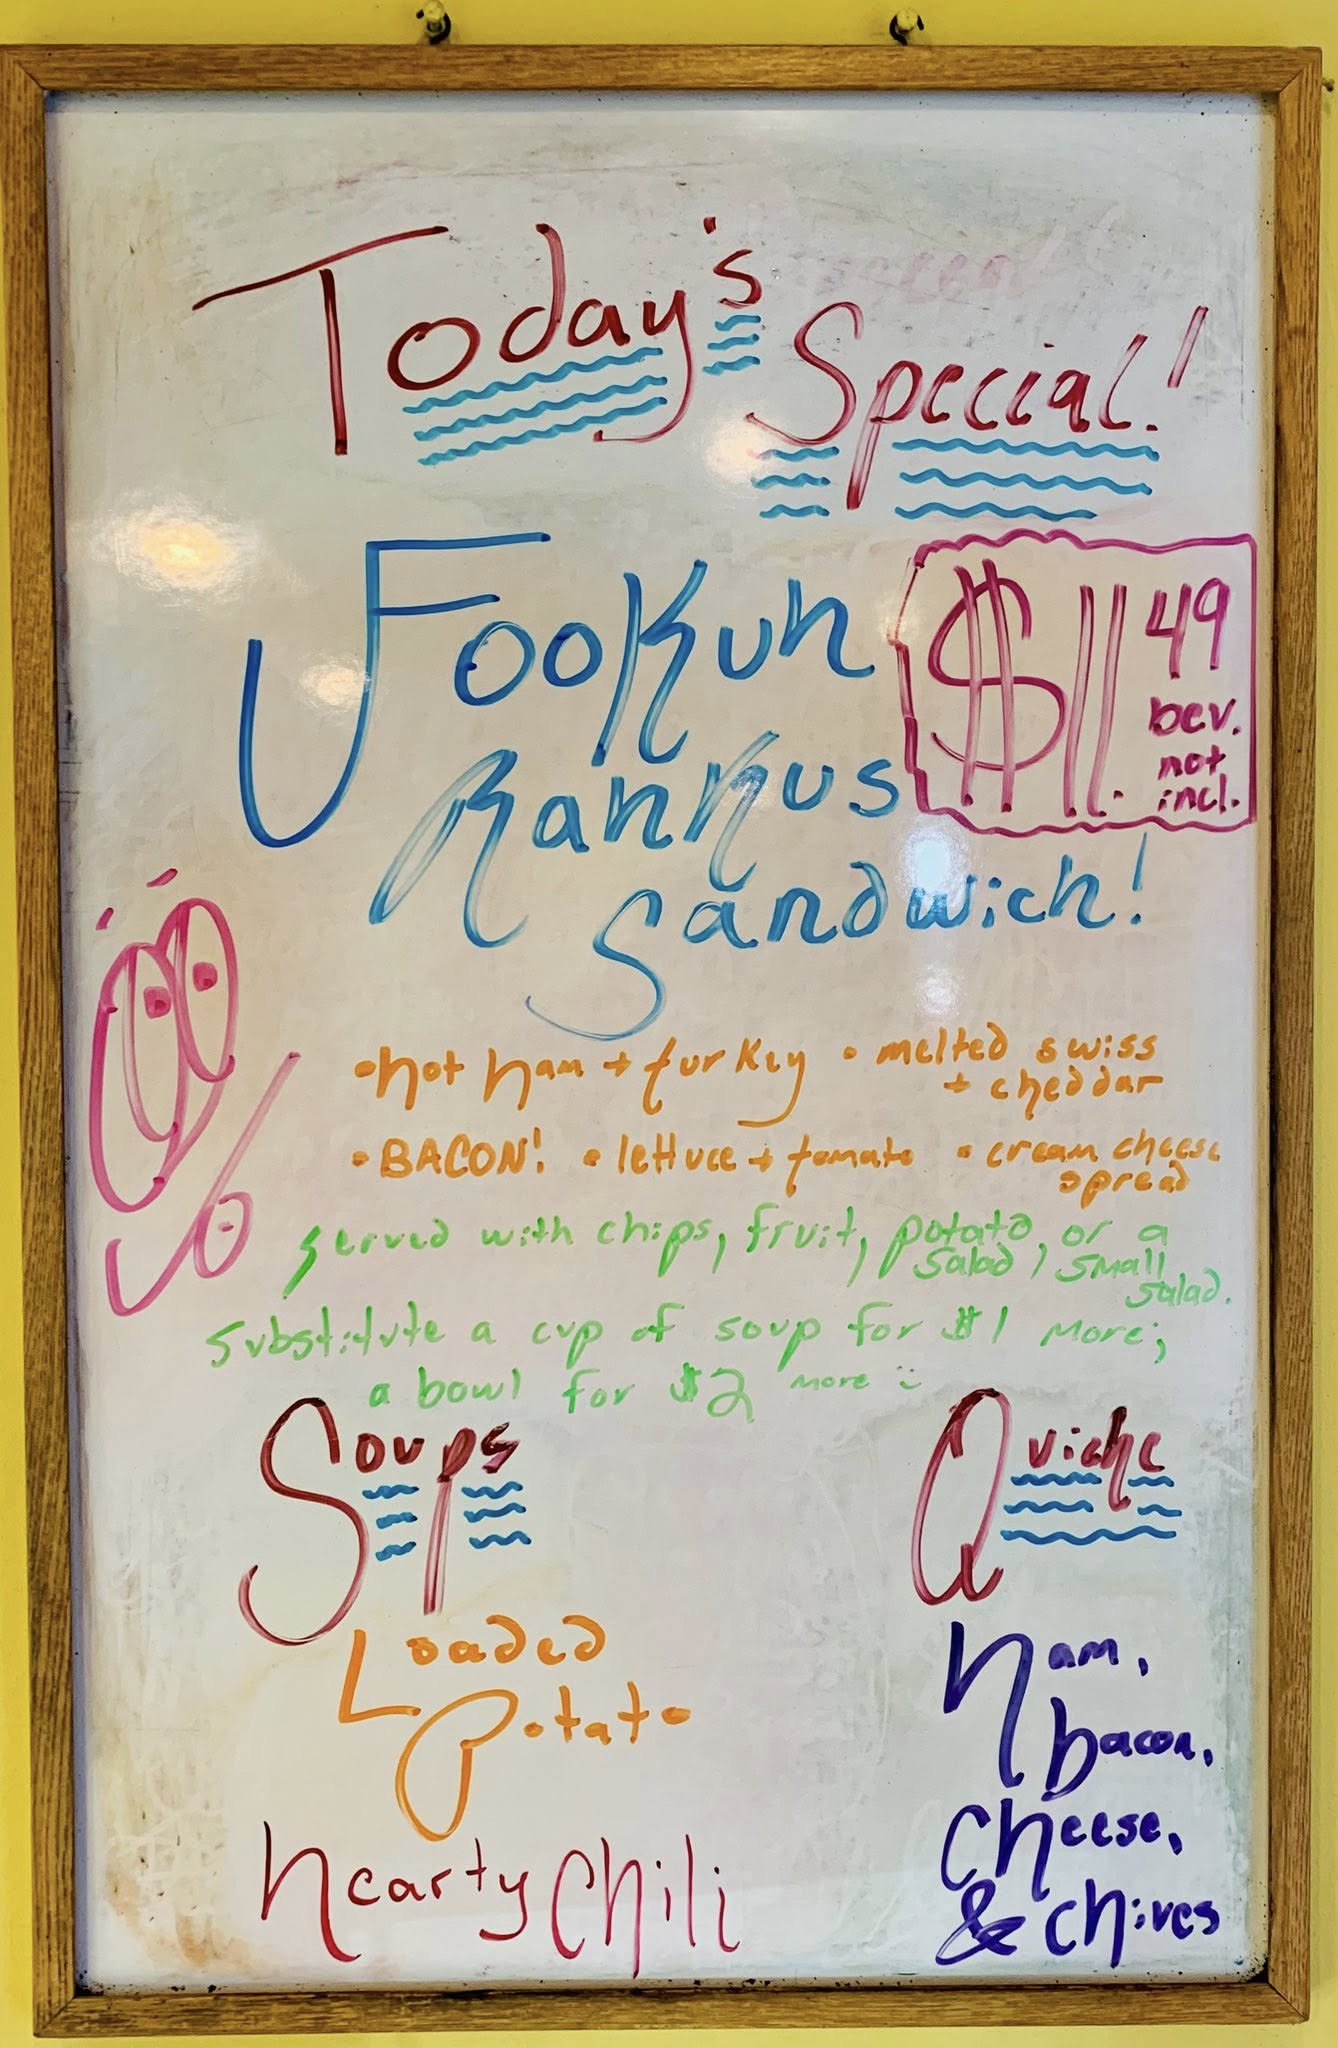 Today's
Special!
FooKun
RanKus
Sandwich!
$11.49
bev.
not
incl.
• hot ham + turkey • melted swiss
+ cheddar
• BACON! • lettuce + tomato • cream cheese
spread
served with chips, fruit, potato
salad, or a
small
salad.
substitute a cup of soup for $1 more;
a bowl for $2 more :)
Soups
Loaded
Potato
hearty chili
Quiche
ham,
bacon,
cheese,
& chives